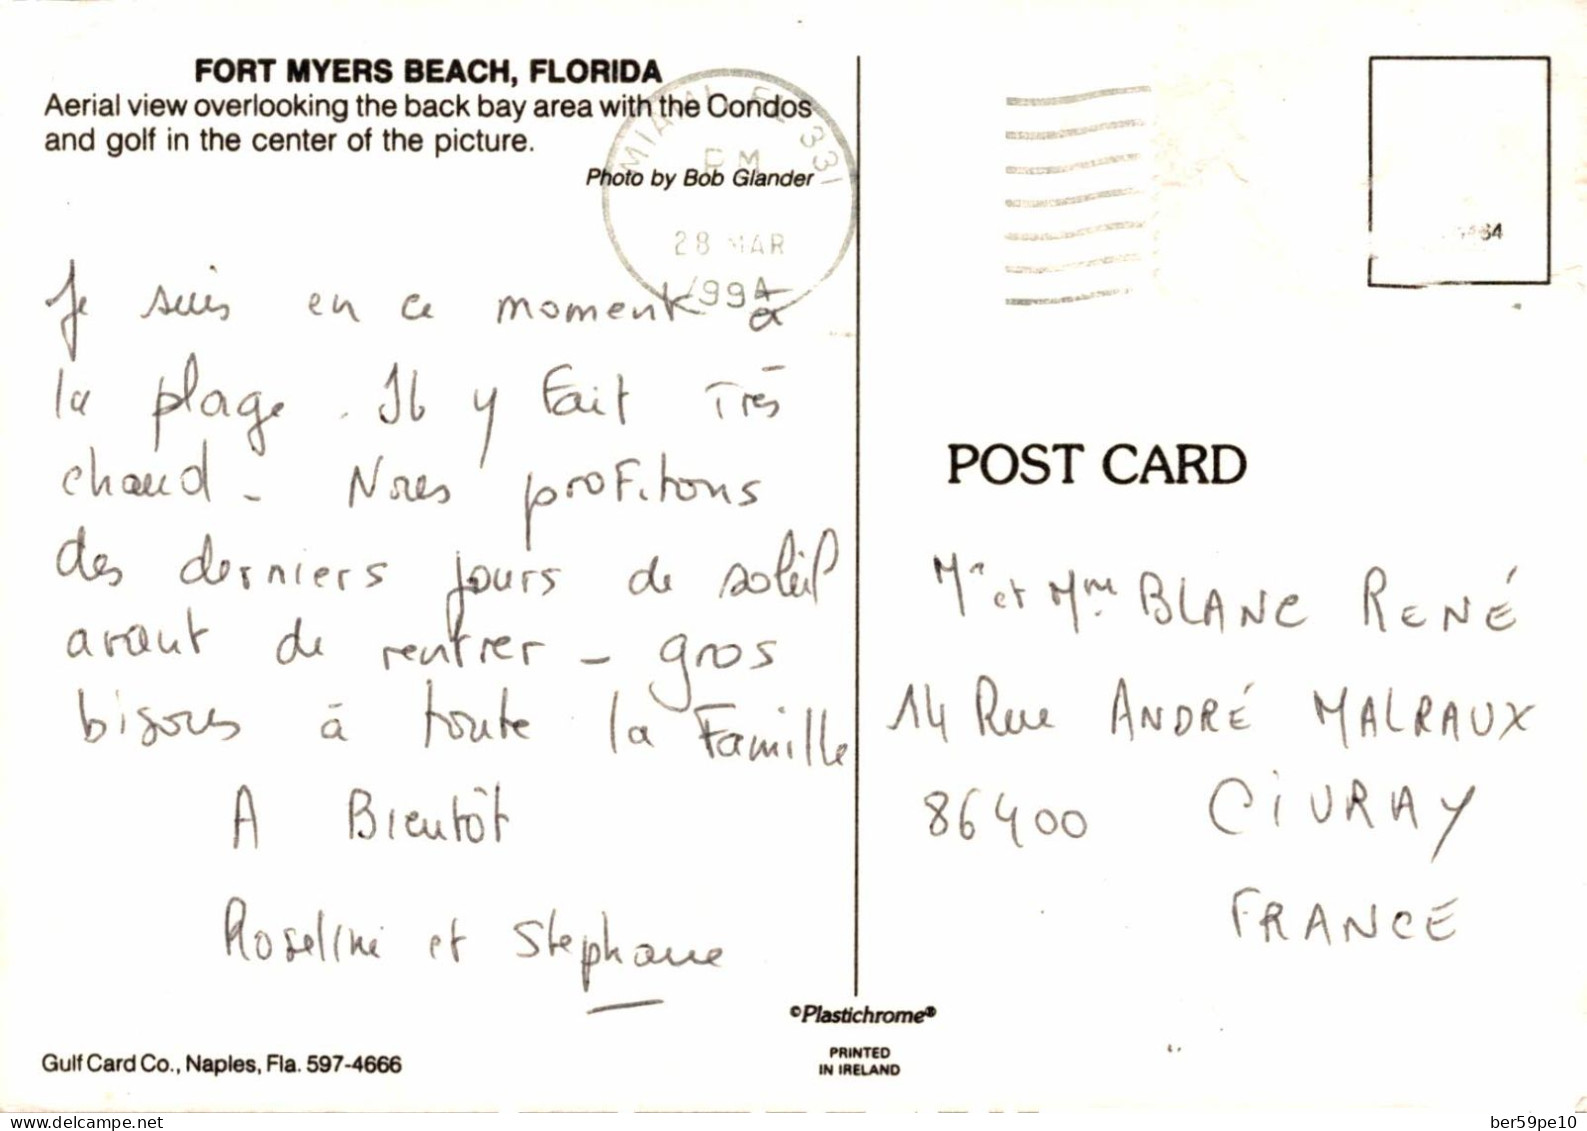 FORT MYERS BEACH, FLORIDA
Aerial view overlooking the back bay area with the Condos
and golf in the center of the picture.
Photo by Bob Glander
MIAMI FL 331
PM
28 MAR
199
Je suis en ce moment à
la plage. Il y fait Très
chaud - Nous profitons
des derniers jours de soleil
avant de rentrer - gros
bisous à toute la Famille
A Bientôt
Roseline et Stephane
Gulf Card Co., Naples, Fla. 597-4666
©Plastichrome®
PRINTED
IN IRELAND
POST CARD
Mr et Mme BLANC RENÉ
14 Rue ANDRÉ MALRAUX
86400 CIVRAY
FRANCE
ber59pe10